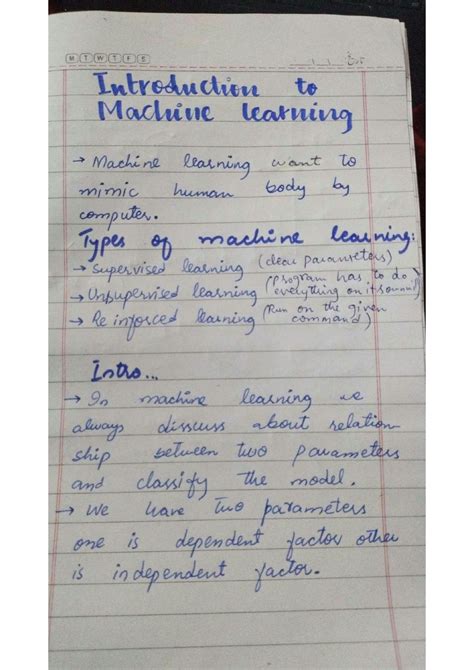 M T W T F S
Introduction to
Machine learning
→ Machine learning want to
mimic human body by
computer.
Types of machine learning:
→ Supervised learning (clear parameters)
→ Unsupervised learning (program has to do everything on its own)
→ Reinforced learning (Run on the given command)
Intro...
→ In machine learning we
always disscuss about relation
ship between two parameters
and classify the model.
→ We have two parameters
one is dependent factor other
is independent factor.